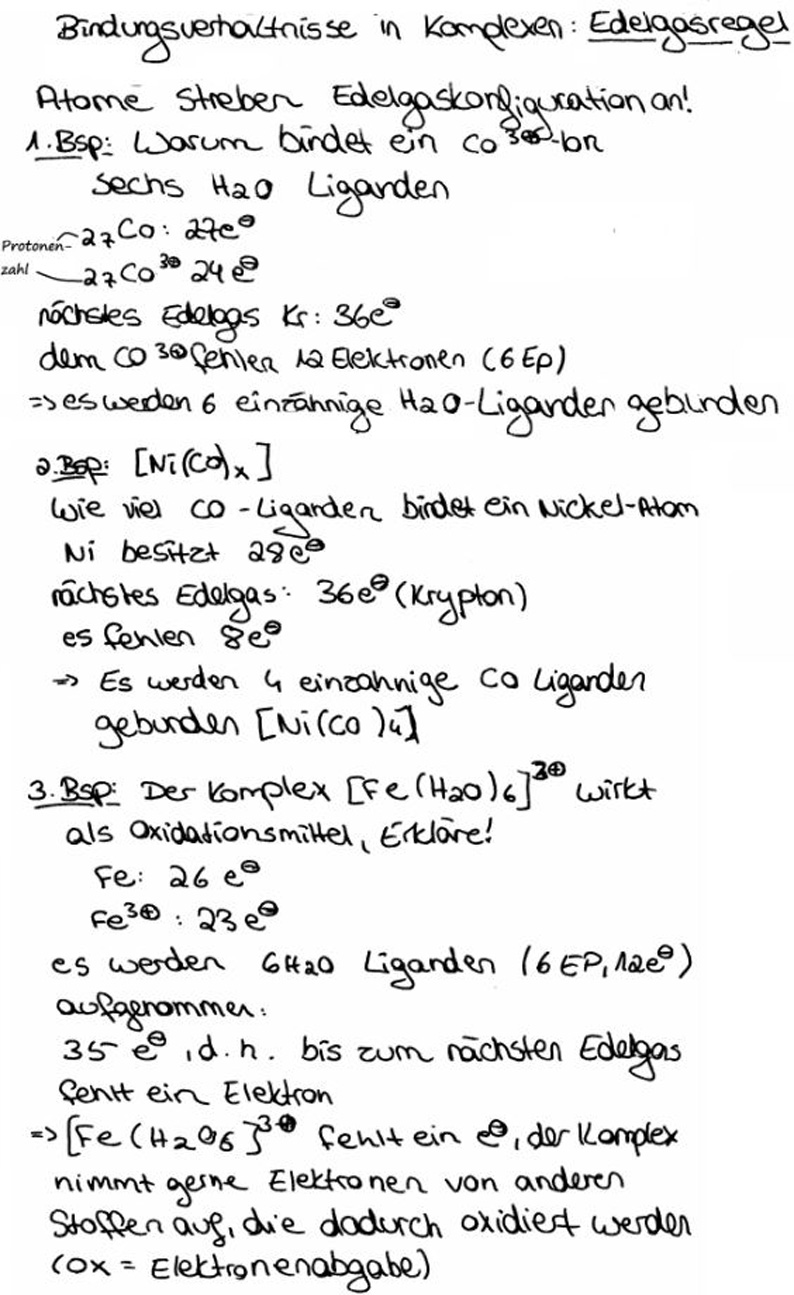 Bindungsverhältnisse in Komplexen: Edelgasregel
Atome streben Edelgaskonfiguration an!
1. Bsp: Warum bindet ein Co³⊕-Ion
sechs H2O Liganden
Protonen-
zahl
₂₇Co: 27e⊖
₂₇Co³⊕ 24e⊖
nächstes Edelgas Kr: 36e⊖
dem CO³⊕ fehlen 12 Elektronen (6 Ep)
=> es werden 6 einzähnige H2O-Liganden gebunden
2. Bsp: [Ni(CO)x]
Wie viel CO-Liganden bindet ein Nickel-Atom
Ni besitzt 28e⊖
nächstes Edelgas: 36e⊖ (Krypton)
es fehlen 8e⊖
=> Es werden 4 einzahnige CO Liganden
gebunden [Ni(CO)4]
3. Bsp: Der Komplex [Fe(H2O)6]³⊕ wirkt
als Oxidationsmittel, Erkläre!
Fe: 26 e⊖
Fe³⊕: 23 e⊖
es werden 6H2O Liganden (6 EP, 12e⊖)
aufgenommen:
35 e⊖, d.h. bis zum nächsten Edelgas
fehlt ein Elektron
=> [Fe(H2O6]³⊕ fehlt ein e⊖, der Komplex
nimmt gerne Elektronen von anderen
Stoffen auf, die dadurch oxidiert werden
(Ox = Elektronenabgabe)